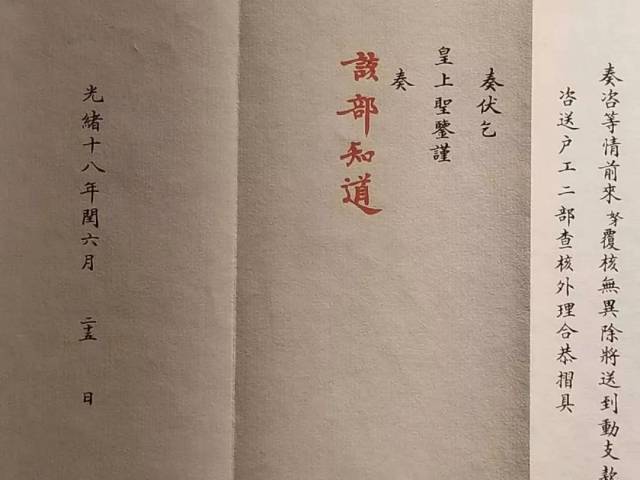 奏咨等情前來等覆核無異除將送到動支款
咨送户工二部查核外理合恭摺具
奏伏乞
皇上聖鑒謹
奏
該部知道
光緒十八年閏六月 二十五 日